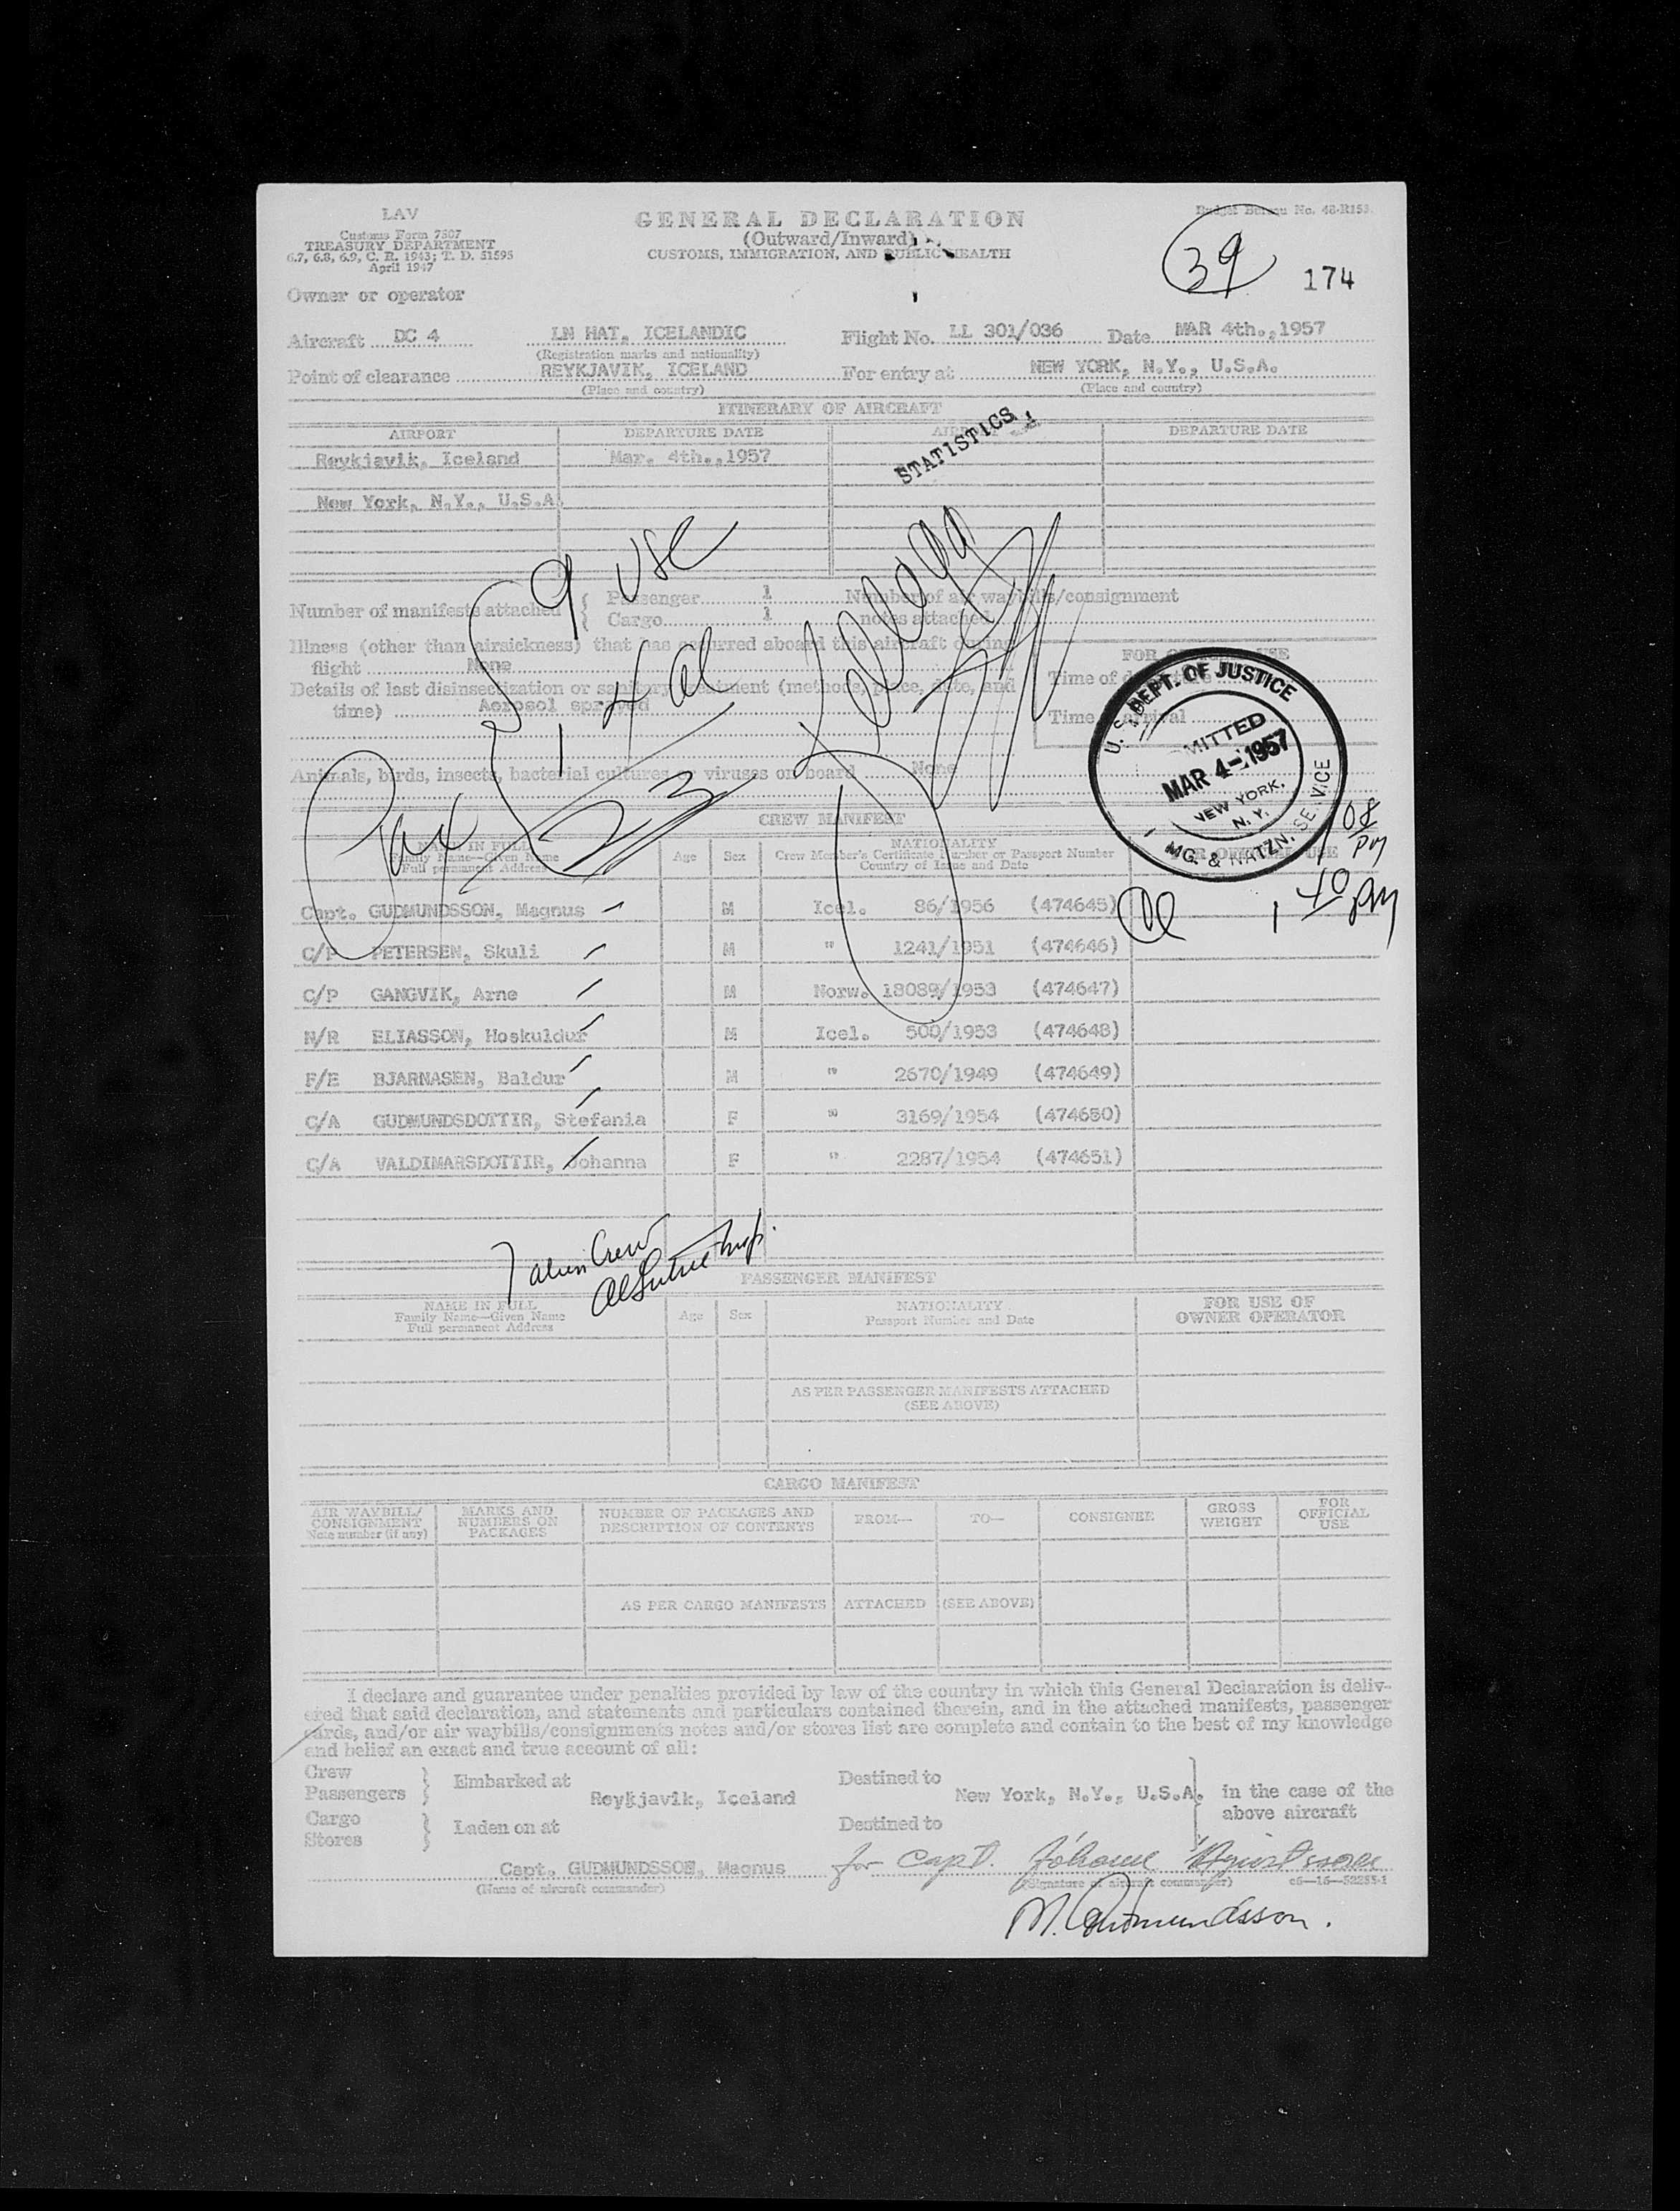 LAV
Customs Form 7507
TREASURY DEPARTMENT
6.7, 6.8, 6.9, C. R. 1943; T. D. 51595
April 1947
GENERAL DECLARATION
(Outward/Inward)
CUSTOMS, IMMIGRATION, AND PUBLIC HEALTH
Budget Bureau No. 48-R153.
39
174
Owner or operator
Aircraft DC 4 LN HAT, ICELANDIC Flight No. LL 301/036 Date MAR 4th.,1957
(Registration marks and nationality)
Point of clearance REYKJAVIK, ICELAND For entry at NEW YORK, N.Y., U.S.A.
(Place and country) (Place and country)
ITINERARY OF AIRCRAFT
AIRPORT DEPARTURE DATE DEPARTURE DATE
STATISTICS
Reykjavik, Iceland Mar. 4th.,1957
New York, N.Y., U.S.A.
9 USC
Number of manifests attached { Passenger 1 Number of air waybills/consignment
Cargo 1 notes attached
Illness (other than airsickness) that has occurred aboard this aircraft during
flight None
FOR OFFICIAL USE
Details of last disinsectization or sanitary treatment (methods, place, date, and
time) Aerosol sprayed
Time of departure
Time of arrival
1 4 al
23
Pax
U. S. DEPT. OF JUSTICE
ADMITTED
MAR 4-1957
NEW YORK, N. Y.
IMG. & NATZN. SERVICE
Animals, birds, insects, bacterial cultures or viruses on board None
CREW MANIFEST
108 PM
NAME IN FULL
Family Name—Given Name
Full permanent Address
Age Sex
NATIONALITY
Crew Member's Certificate Number or Passport Number
Country of Issue and Date
FOR OFFICIAL USE
1 40 PM
Capt. GUDMUNDSSON, Magnus M Icel. 86/1956 (474645)
C/P PETERSEN, Skuli M " 1241/1951 (474646)
C/P GANGVIK, Arne M Norw. 18089/1953 (474647)
N/R ELIASSON, Hoskuldur M Icel. 500/1953 (474648)
F/E BJARNASEN, Baldur M " 2670/1949 (474649)
C/A GUDMUNDSDOTTIR, Stefania F " 3169/1954 (474650)
C/A VALDIMARSDOTTIR, Johanna F " 2287/1954 (474651)
7 alien Crew
PASSENGER MANIFEST
NAME IN FULL
Family Name—Given Name
Full permanent Address
Age Sex
NATIONALITY
Passport Number and Date
FOR USE OF
OWNER OPERATOR
AS PER PASSENGER MANIFESTS ATTACHED
(SEE ABOVE)
CARGO MANIFEST
AIR WAYBILL/
CONSIGNMENT
Note number (if any)
MARKS AND
NUMBERS ON
PACKAGES
NUMBER OF PACKAGES AND
DESCRIPTION OF CONTENTS
FROM— TO— CONSIGNEE
GROSS
WEIGHT
FOR
OFFICIAL
USE
AS PER CARGO MANIFESTS ATTACHED (SEE ABOVE)
I declare and guarantee under penalties provided by law of the country in which this General Declaration is deliv-
ered that said declaration, and statements and particulars contained therein, and in the attached manifests, passenger
cards, and/or air waybills/consignments notes and/or stores list are complete and contain to the best of my knowledge
and belief an exact and true account of all:
Crew
Passengers } Embarked at Reykjavik, Iceland Destined to New York, N.Y., U.S.A. in the case of the
above aircraft
Cargo
Stores } Laden on at Destined to
Capt. GUDMUNDSSON, Magnus for Capt.
(Name of aircraft commander) (Signature of aircraft commander) c6—16—52255-1
M. Gudmundsson.